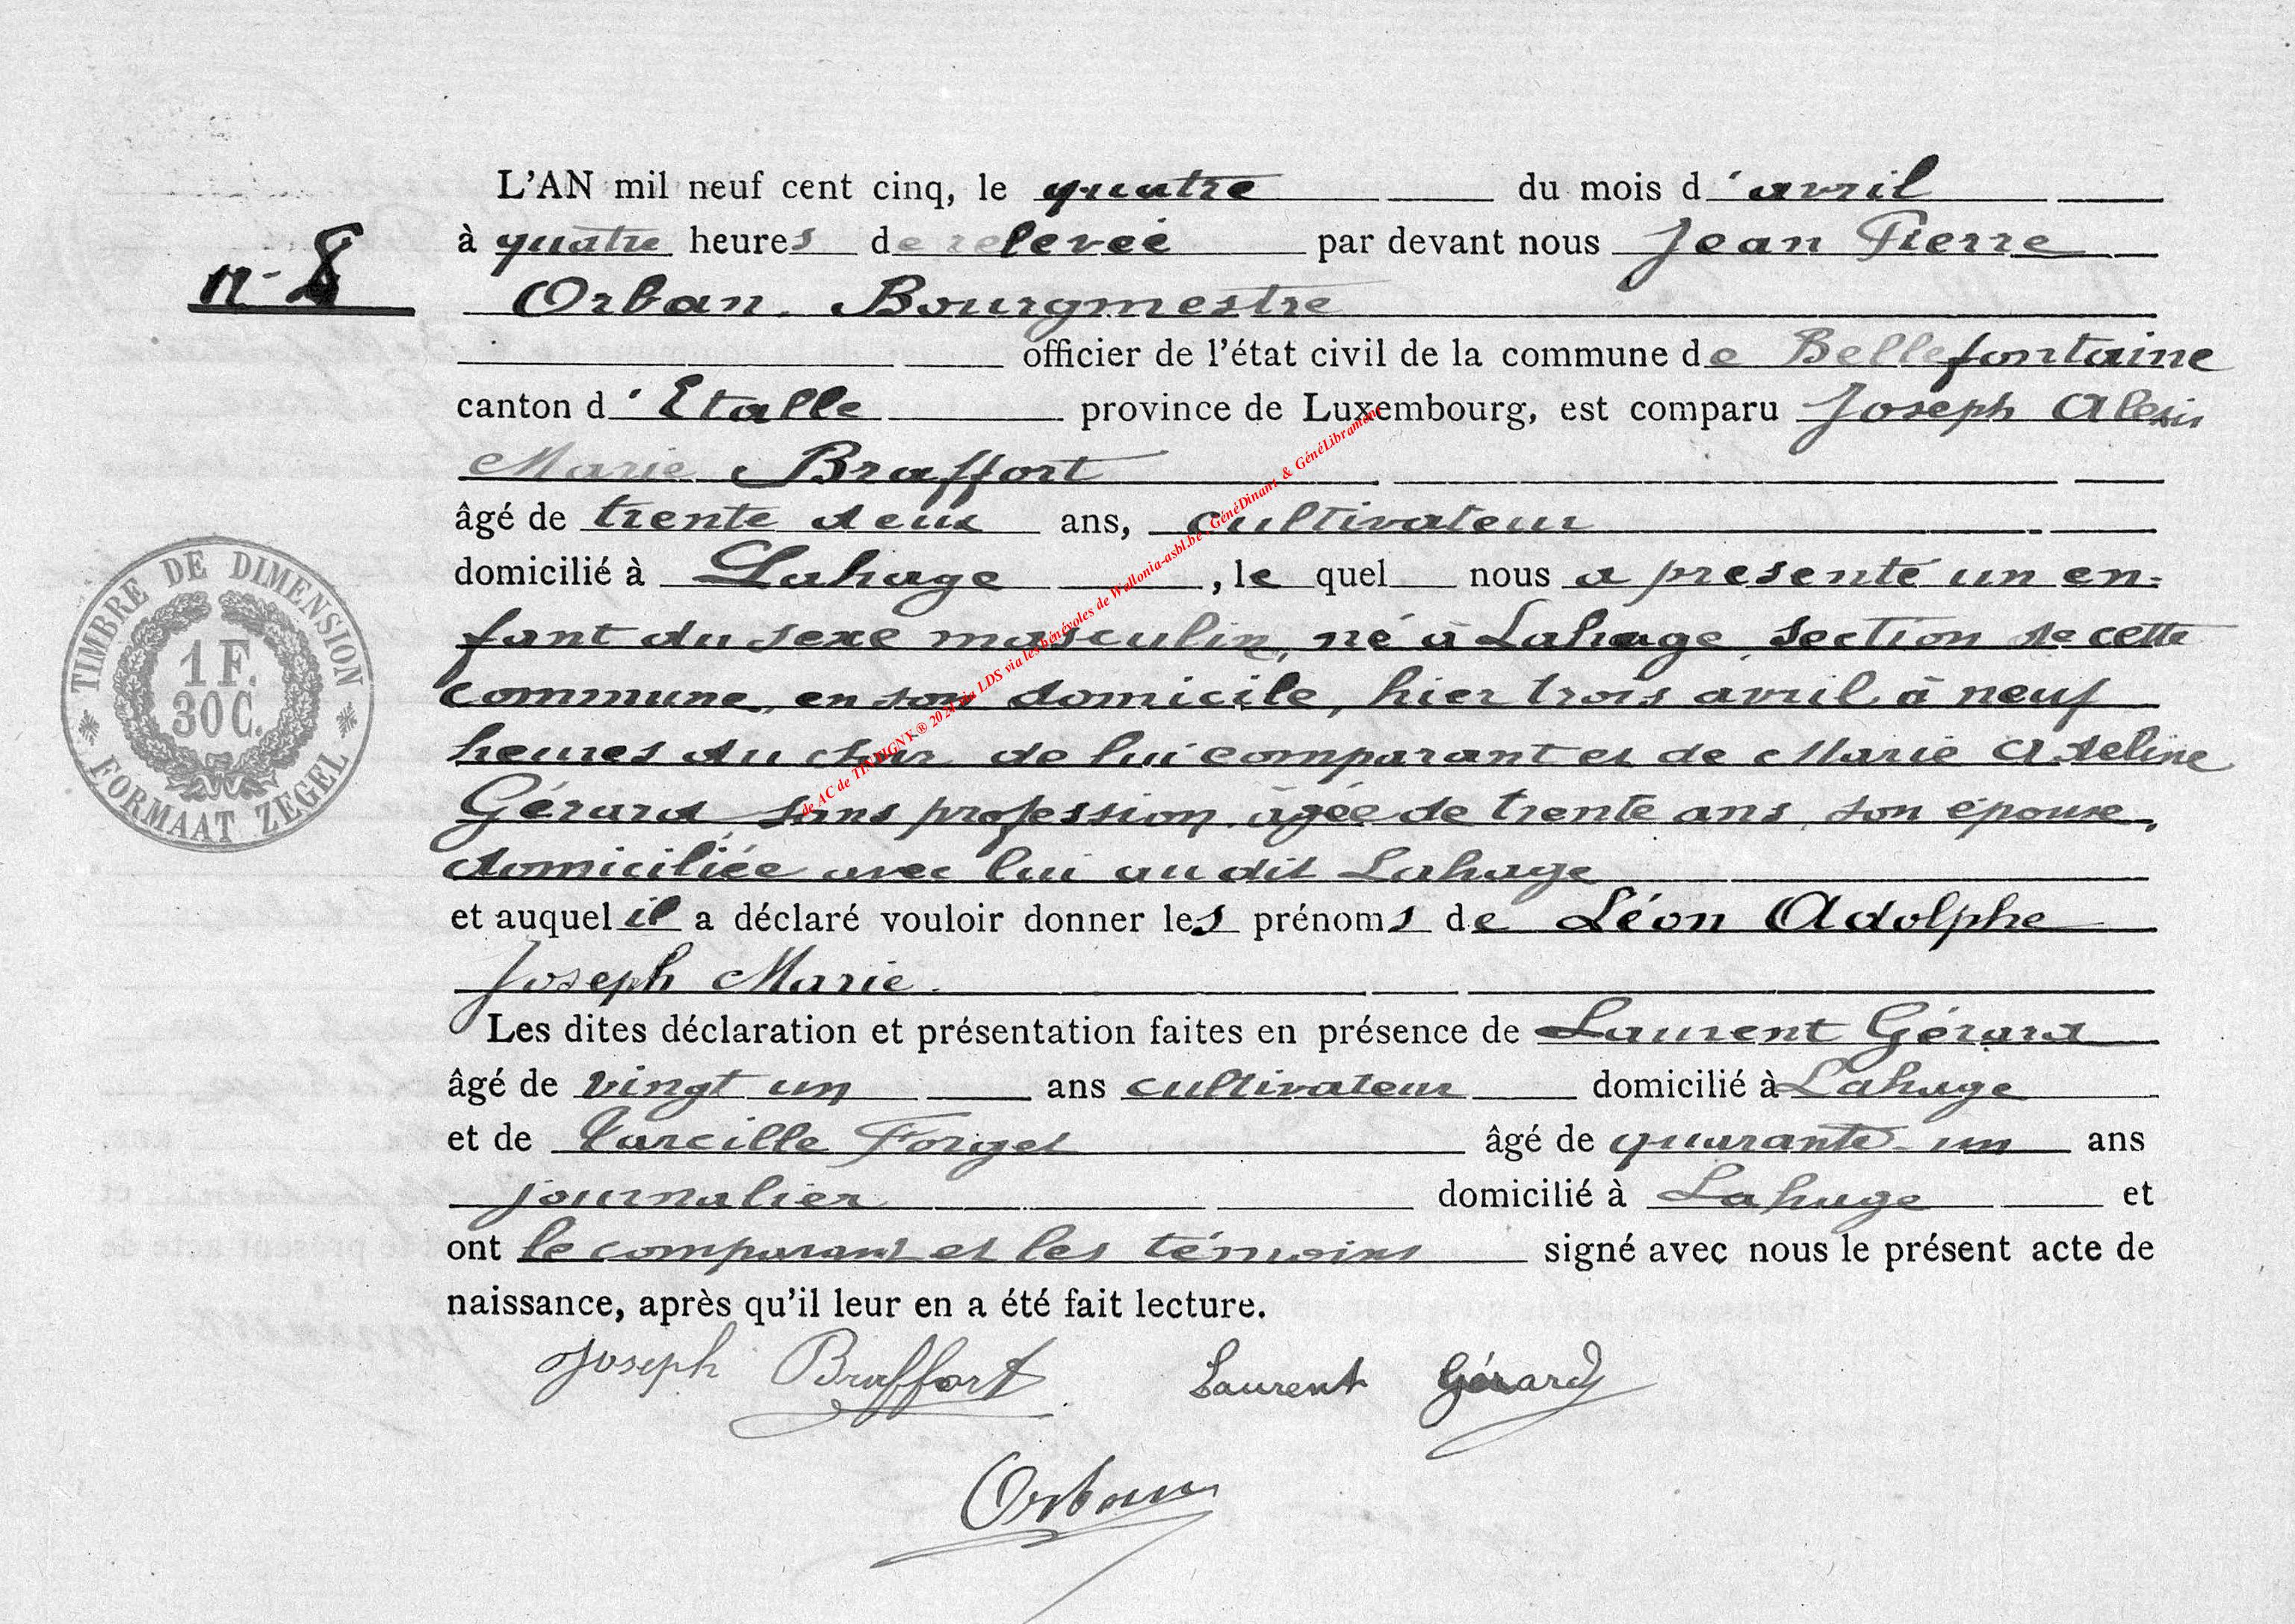 L'AN mil neuf cent cinq, le quatre du mois d'avril
n° 8
à quatre heures de relevée par devant nous Jean Pierre
Orban, Bourgmestre
officier de l'état civil de la commune de Bellefontaine
canton d'Etalle province de Luxembourg, est comparu Joseph Alexis
Marie Braffort
âgé de trente deux ans, cultivateur
domicilié à Lahage, le quel nous a présenté un en-
fant du sexe masculin, né à Lahage, section de cette
commune, en son domicile, hier trois avril à neuf
heures du soir de lui comparant et de Marie Adeline
Gérard, sans profession, âgée de trente ans, son épouse,
domiciliée avec lui au dit Lahage
et auquel il a déclaré vouloir donner les prénoms de Léon Adolphe
Joseph Marie.
Les dites déclaration et présentation faites en présence de Laurent Gérard
âgé de vingt un ans cultivateur domicilié à Lahage
et de Tarcille Forget âgé de quarante-un ans
journalier domicilié à Lahage et
ont le comparant et les témoins signé avec nous le présent acte de
naissance, après qu'il leur en a été fait lecture.
Joseph Braffort Laurent Gérard
Orban
TIMBRE DE DIMENSION
1 F.
30 C.
FORMAAT ZEGEL
de AC de TINTIGNY ® 2024 via LDS via les bénévoles de Wallonia-asbl.be, GénéDinant & GénéLibramont